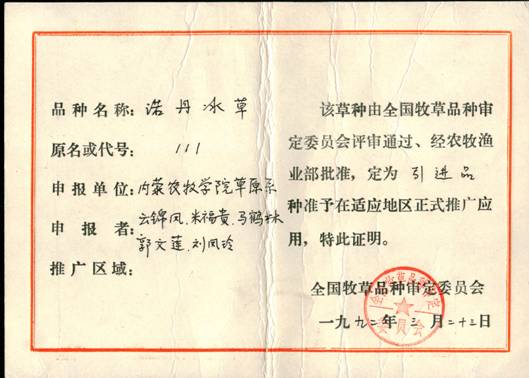 品种名称：诺丹冰草
原名或代号：111
申报单位：内蒙农牧学院草原系
申报者：云锦凤、米福贵、马鹤林
郭文莲、刘凤玲
推广区域：
该草种由全国牧草品种审
定委员会评审通过、经农牧渔
业部批准，定为引进品
种准予在适应地区正式推广应
用，特此证明。
全国牧草品种审定委员会
一九九二年三月二十三日